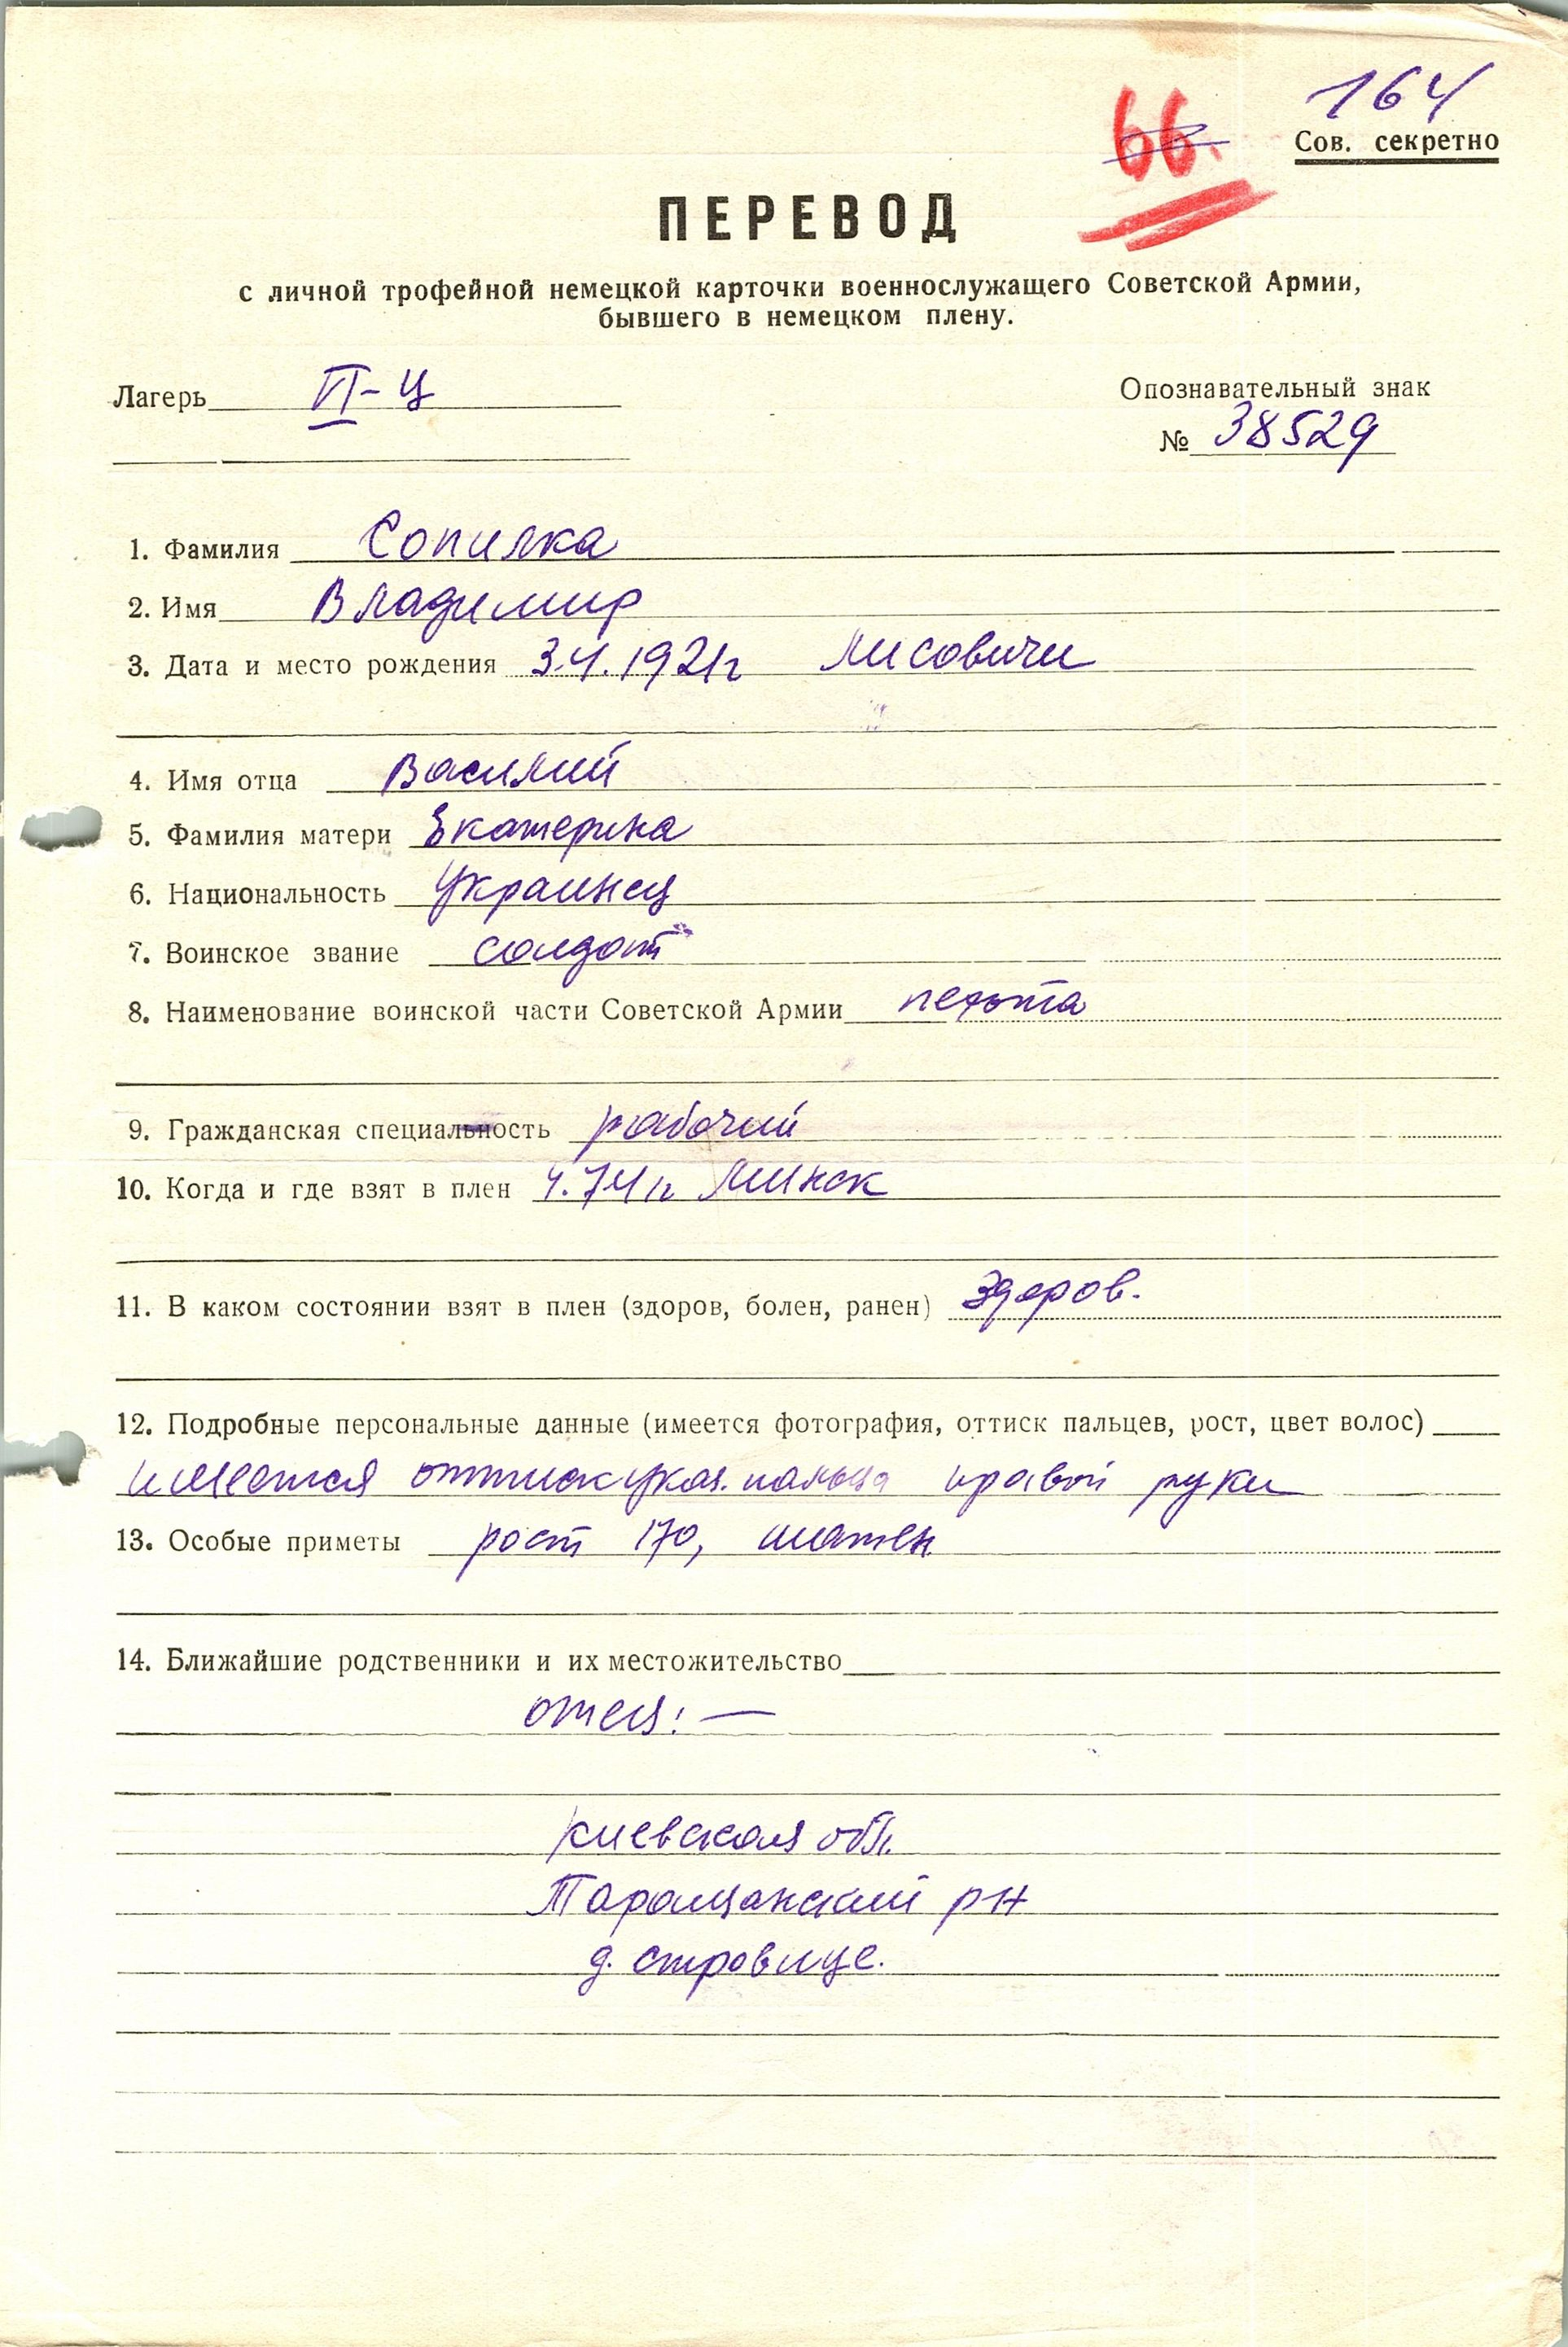 66.
164
Сов. секретно
ПЕРЕВОД
с личной трофейной немецкой карточки военнослужащего Советской Армии,
бывшего в немецком плену.
Лагерь VI-Ц
Опознавательный знак
№ 38529
1. Фамилия Сопилка
2. Имя Владимир
3. Дата и место рождения 3.4.1921г Лисовичи
4. Имя отца Василий
5. Фамилия матери Екатерина
6. Национальность Украинец
7. Воинское звание солдат
8. Наименование воинской части Советской Армии пехота
9. Гражданская специальность рабочий
10. Когда и где взят в плен Минск
11. В каком состоянии взят в плен (здоров, болен, ранен) здоров.
12. Подробные персональные данные (имеется фотография, оттиск пальцев, рост, цвет волос)
имеется оттиск указ. пальца правой руки
13. Особые приметы рост 170, шатен
14. Ближайшие родственники и их местожительство
отец: —
Киевская обл.
Таращанский р-н
д. стровице.